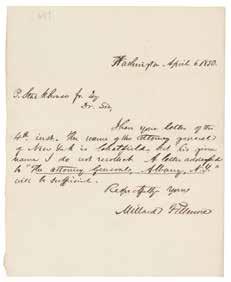 Washington April 6. 1850.
Dr. Sir,
your letter of the
4th inst. The name of the attorney general
of New York is Chatfield, but his given
name I do not recollect. A letter addressed
to "The attorney General, Albany, N.Y."
will be sufficient.
Respectfully yours
Millard Fillmore